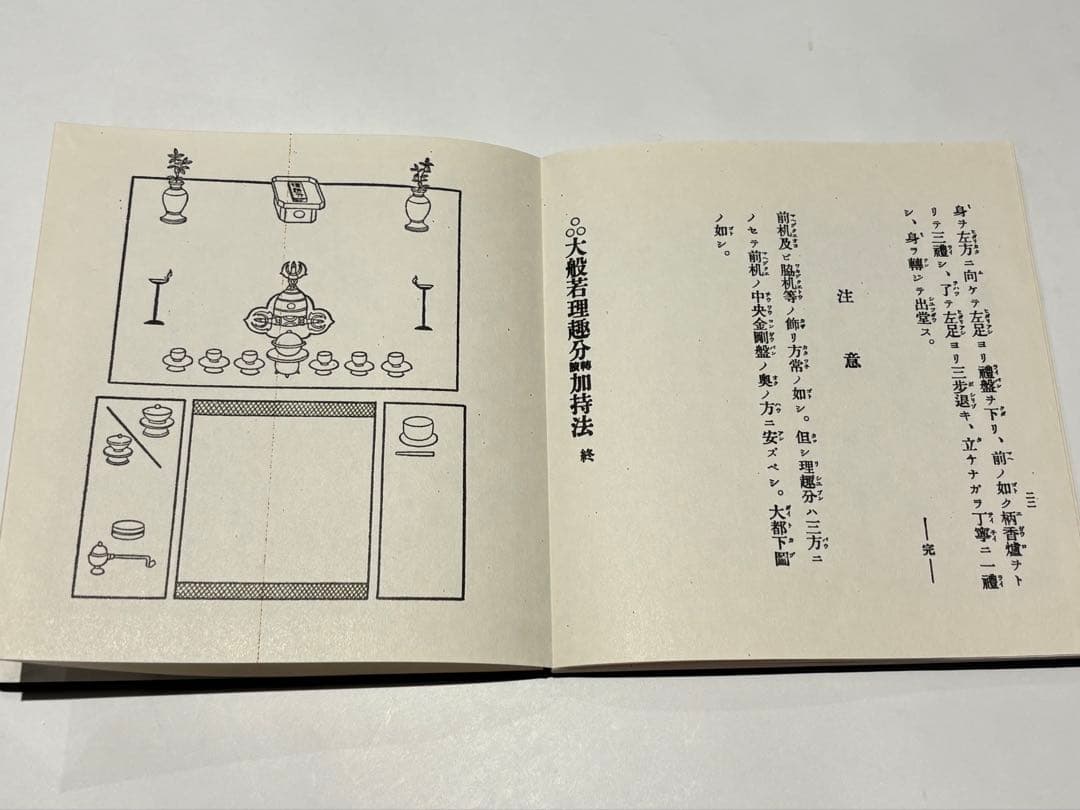 二二
身ヲ左方ニ向ケテ左足ヨリ禮盤ヲ下リ、前ノ如ク柄香爐ヲト
リテ三禮シ、了テ左足ヨリ三步退キ、立チナガラ丁寧ニ一禮
シ、身ヲ轉ジテ出堂ス。
―完―
注意
前机及ビ脇机等ノ飾リ方常ノ如シ。但シ理趣分ハ三方ニ
ノセテ前机ノ中央金剛盤ノ奧ノ方ニ安ズベシ。大都下圖
ノ如シ。
大般若理趣分轉讀加持法 終